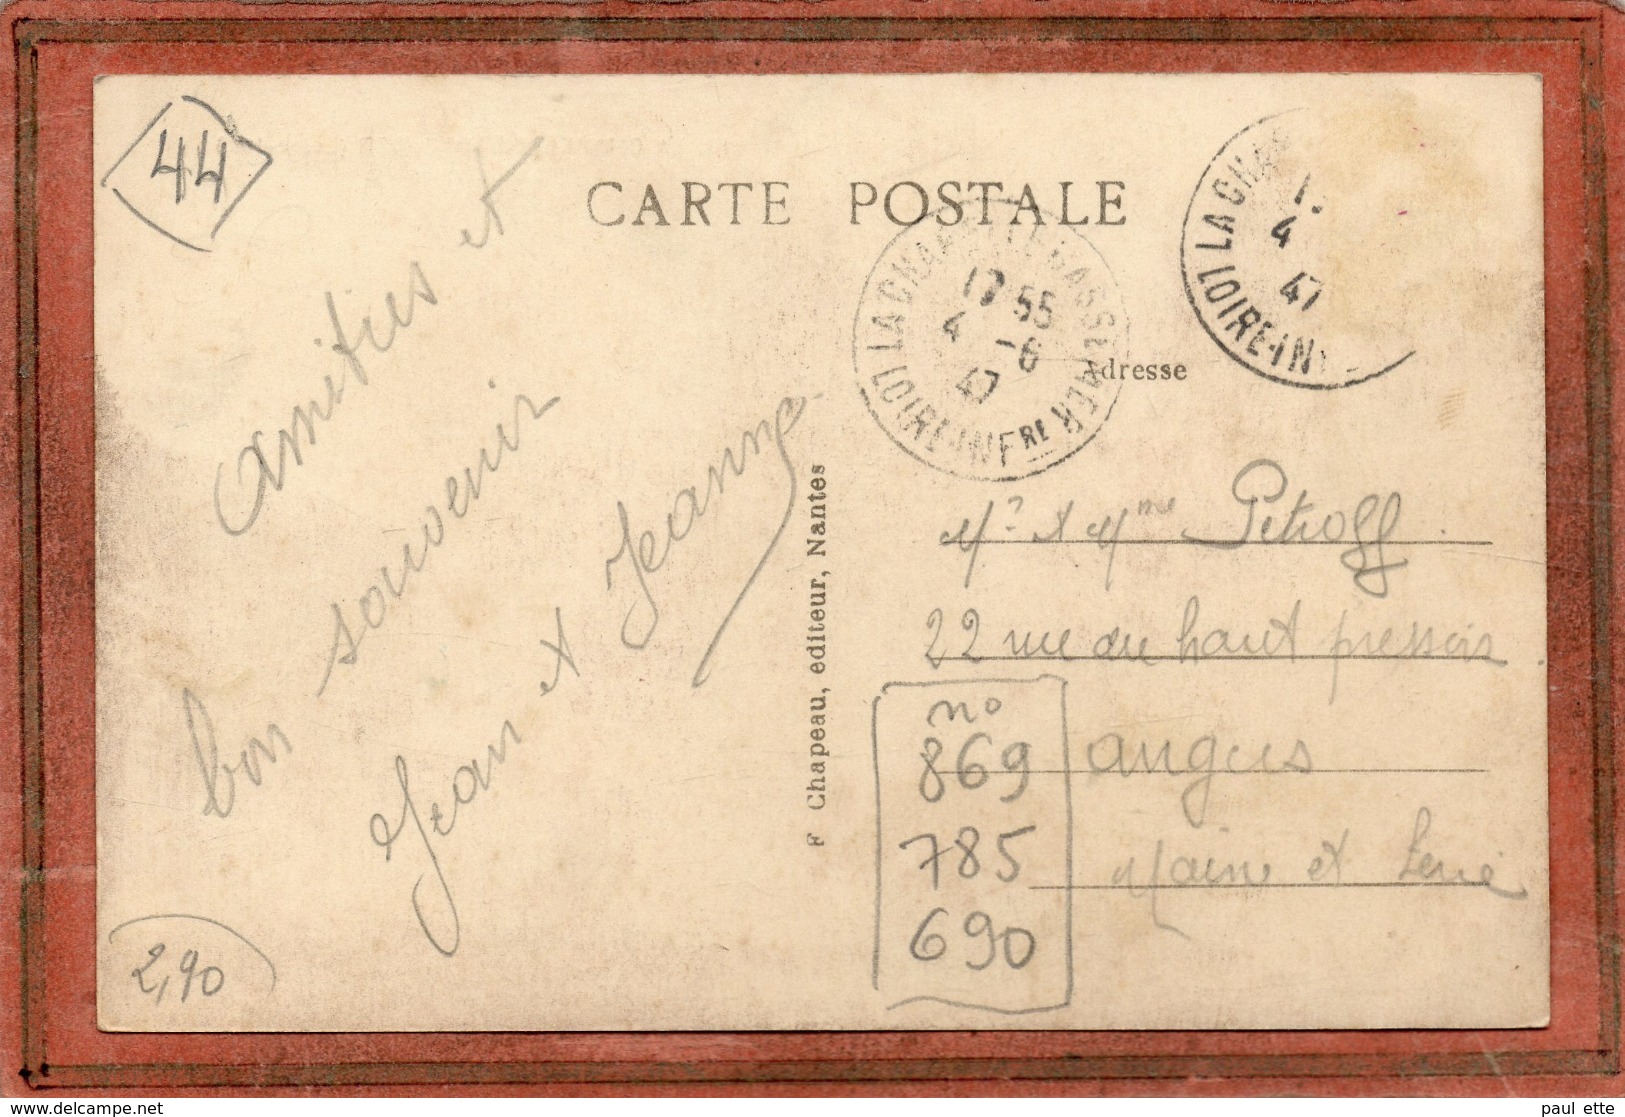 44
CARTE POSTALE
LA CHAPELLE-BASSE-MER
17 55
4 -6
47
LOIRE-INFRE
LA CHAP
4
47
LOIRE-IN
Adresse
Amitiés et
bon souvenir
Jean et Jeanne
F Chapeau, editeur, Nantes
Mr et Mme Pétroff
22 rue du haut pressoir
Angers
Maine et Loire
no
869
785
690
2,90
www.delcampe.net
paul ette